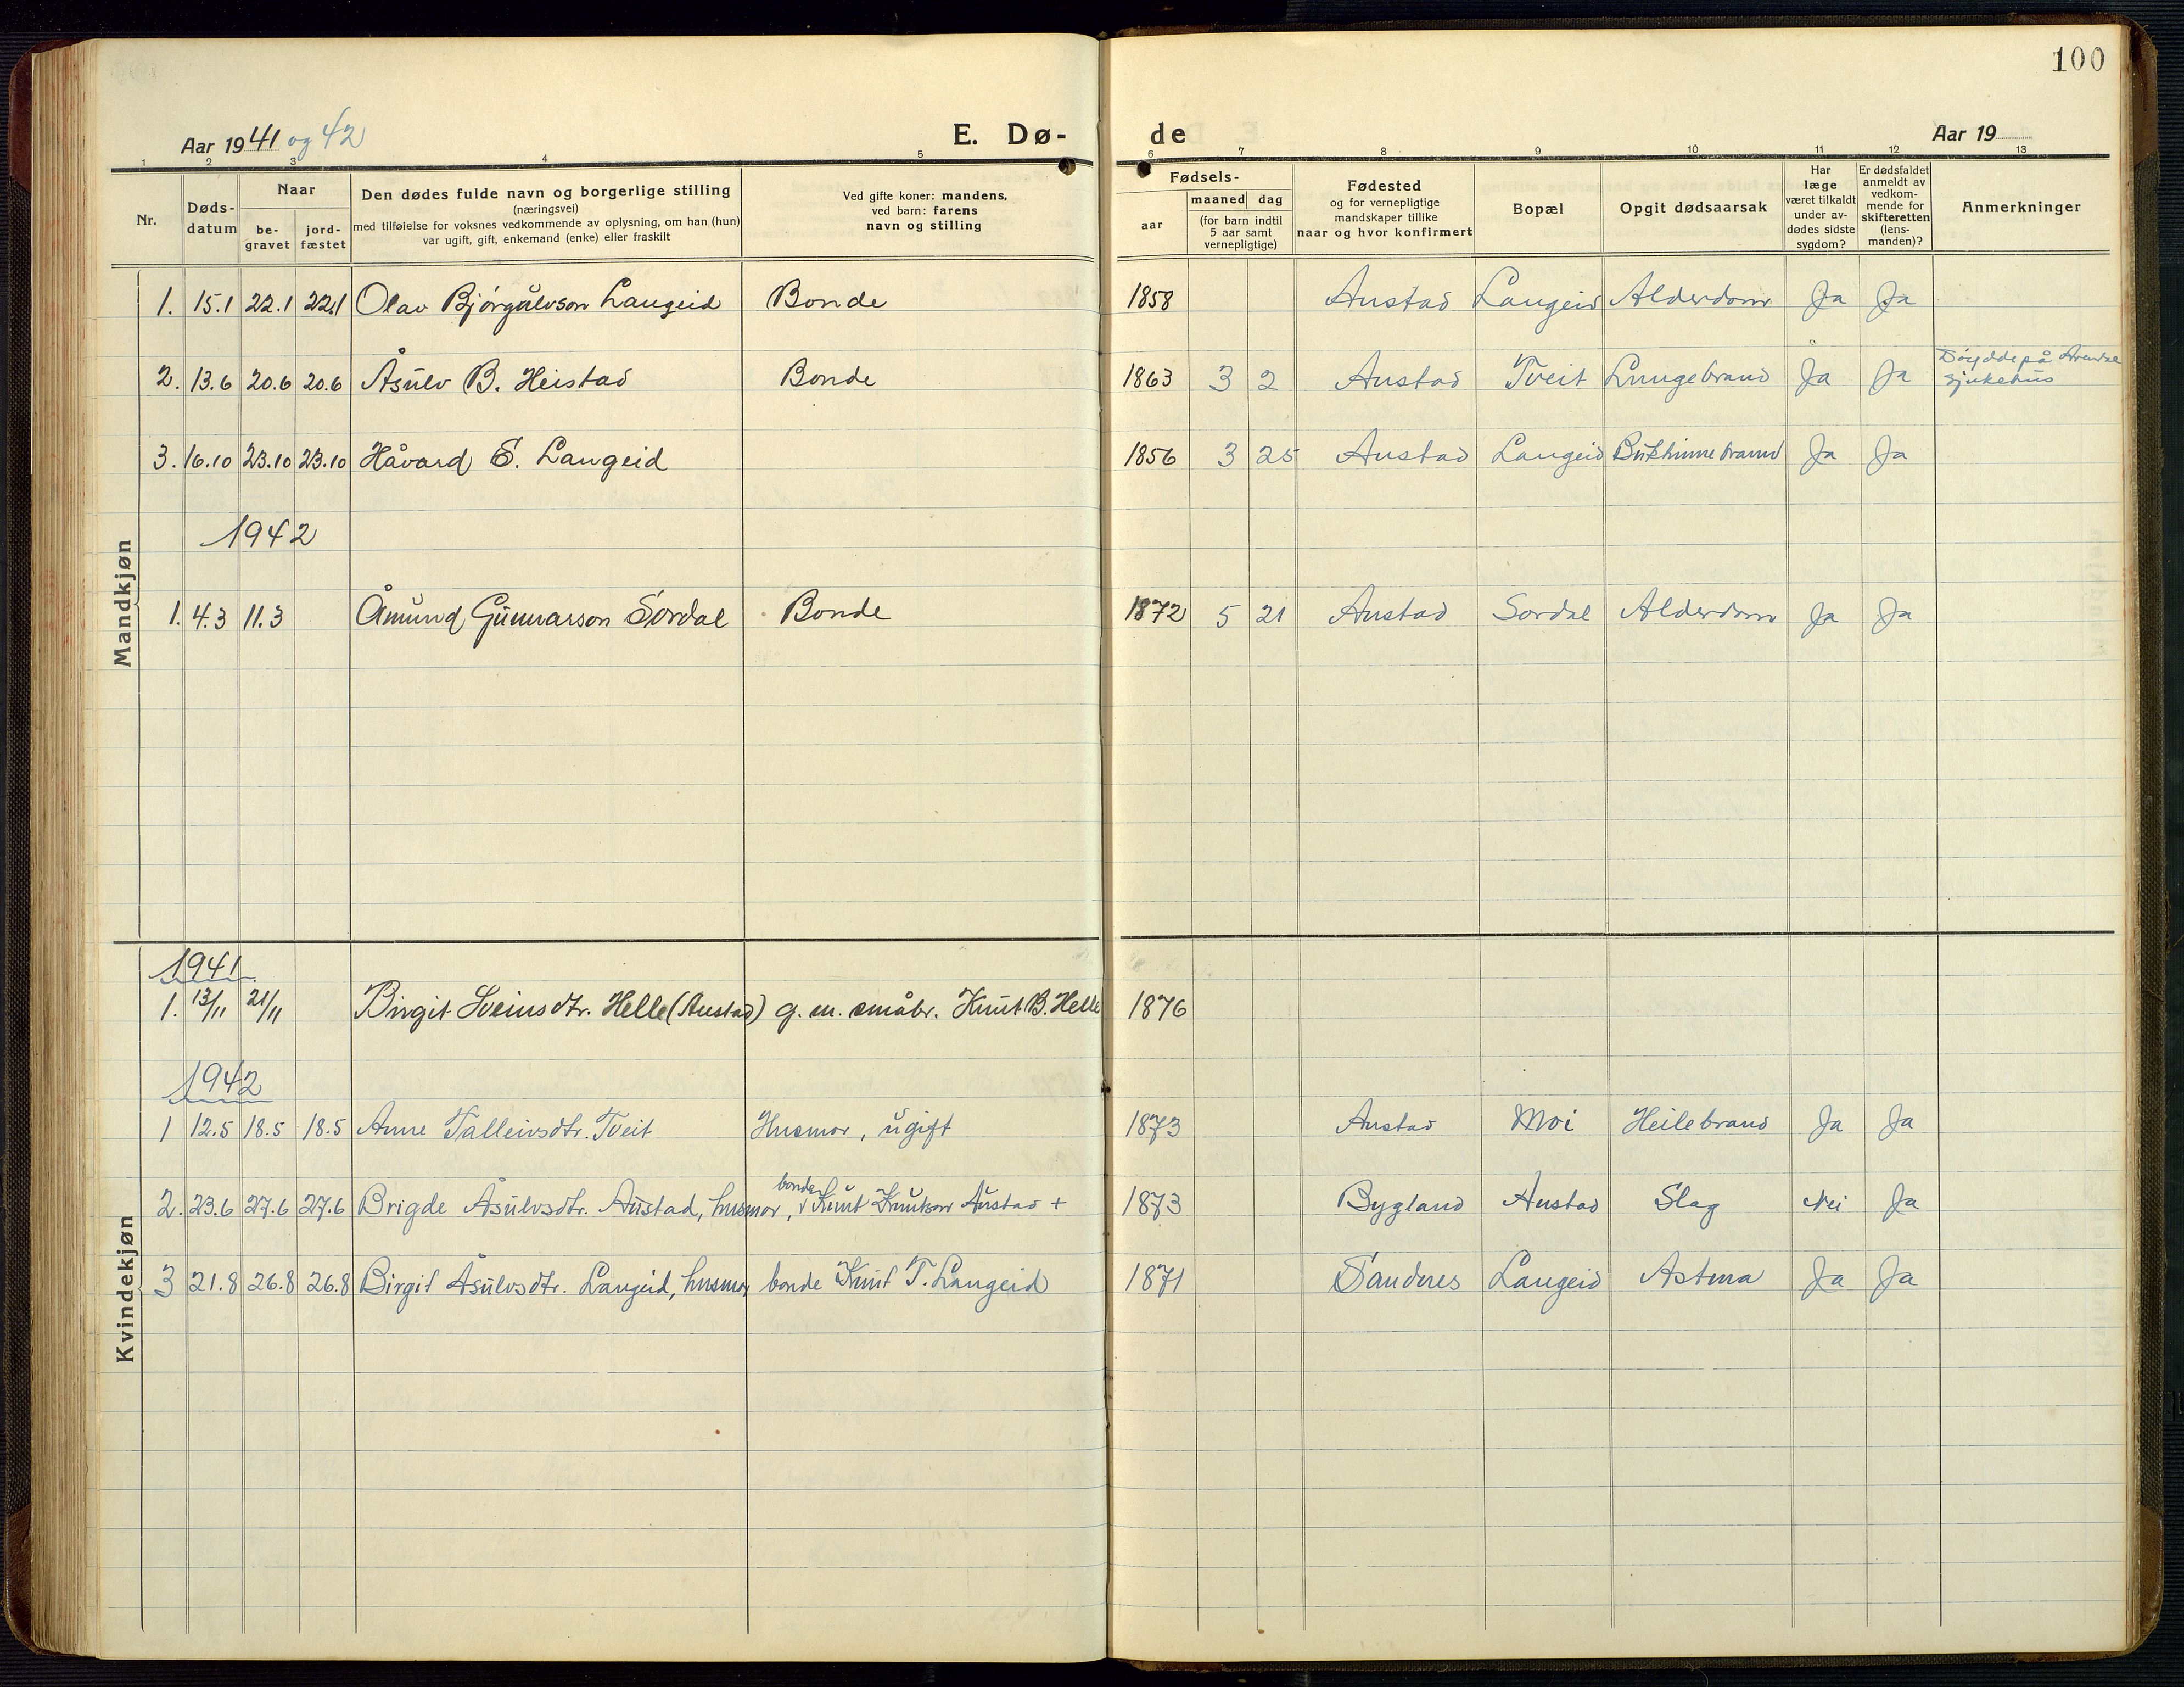 100
Aar 1941 og 42
E. Dø-
de
Aar 19
1 2 3 4 5 6 7 8 9 10 11 12 13
Nr.
Døds-
datum
Naar
be-
gravet
jord-
fæstet
Den dødes fulde navn og borgerlige stilling
(næringsvei)
med tilføielse for voksnes vedkommende av oplysning, om han (hun)
var ugift, gift, enkemand (enke) eller fraskilt
Ved gifte koner: mandens,
ved barn: farens
navn og stilling
Fødsels-
aar
maaned dag
(for barn indtil
5 aar samt
vernepligtige)
Fødested
og for vernepligtige
mandskaper tillike
naar og hvor konfirmert
Bopæl
Opgit dødsaarsak
Har
læge
været tilkaldt
under av-
dødes sidste
sygdom?
Er dødsfaldet
anmeldt av
vedkom-
mende for
skifteretten
(lens-
manden)?
Anmerkninger
Mandkjøn
1. 15.1 22.1 22.1 Olav Bjørgulvson Langeid Bonde 1858 Austad Langeid Alderdom Ja Ja
2. 13.6 20.6 20.6 Åsulv B. Heistad Bonde 1863 3 2 Austad Tveit Lungebrand Ja Ja Døydde på Arendal
sjukehus
3. 16.10 23.10 23.10 Håvard S. Langeid 1856 3 25 Austad Langeid Bukhinnebrand Ja Ja
1942
1. 4.3 11.3 Åmund Gunnarson Sordal Bonde 1872 5 21 Austad Sordal Alderdom Ja Ja
Kvindekjøn
1941
1. 13/11 21/11 Birgit Sveinsdtr. Helle (Austad) g. m. småbr. Knut B. Helle 1876
1942
1 12.5 18.5 18.5 Anne Talleivsdtr. Tveit Husmor, ugift 1873 Austad Moi Heilebrand Ja Ja
2. 23.6 27.6 27.6 Brigde Åsulvsdtr. Austad, husmor, bonde Knut Knutson Austad + 1873 Bygland Austad Slag Nei Ja
3 21.8 26.8 26.8 Birgit Åsulvsdtr. Langeid, husmor bonde Knut T. Langeid 1871 Sandnes Langeid Astma Ja Ja